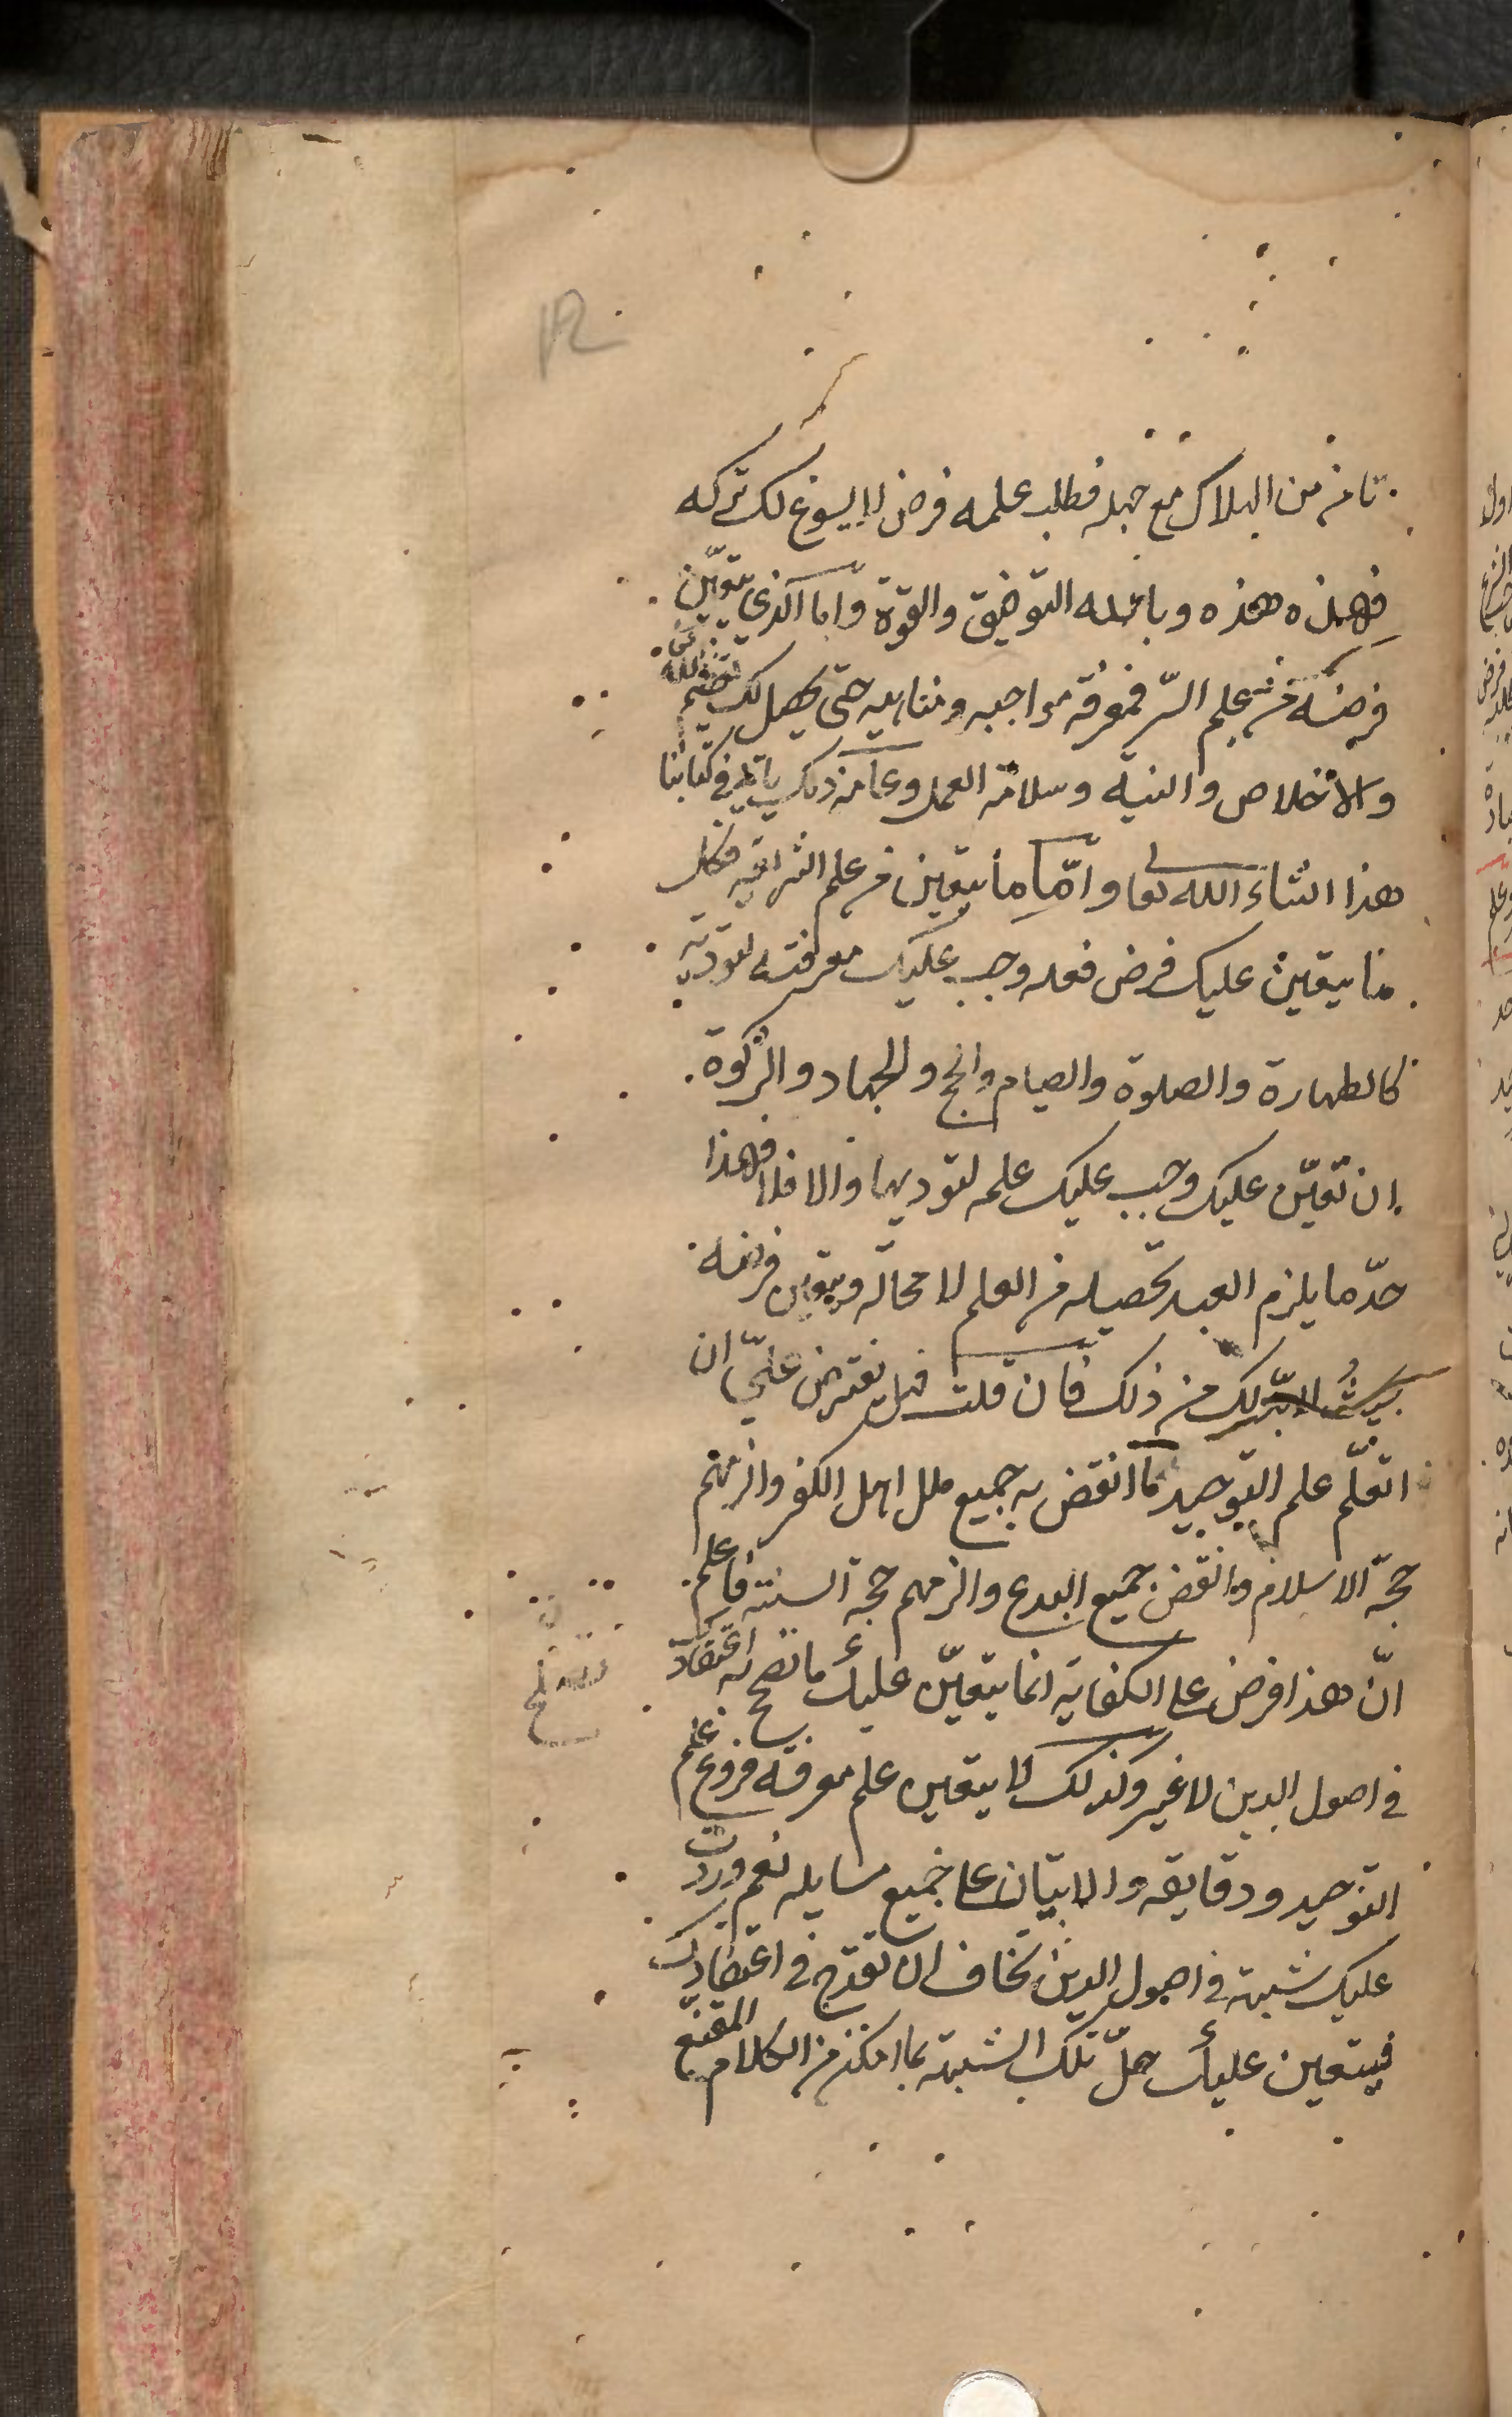 12
تامن من الهلاك مع جهله فطلب علمه فرض لا يسوغ لك تركه
فهذه هذه وبالله التوفيق والقوة واما الذي يتعين
فرضه من علم السر فمعرفة مواجبه ومناهيه حتى يحصل لك تعظيم الله
والاخلاص والنية وسلامة العمل وعامة ذلك ياتي في كتابنا
هذا انشاء الله تعا وامّا ما يتعين من علم الشريعة فكل
ما يتعين عليك فرض فعله وجب عليك معرفته لتؤديه
كالطهارة والصلوة والصيام والحج والجهاد والزكوة
ان تعيّن عليك وجب عليك علمه لتوديها والا فلا فهذا
حدّ ما يلزم العبد تحصيله من العلم لا محالة ويتعين فرضه
لك من ذلك فان قلت فهل يفترض عليّ ان
اتعلّم علم التوحيد ما انقض به جميع ملل اهل الكفر والزمهم
حجّة الاسلام وانقض جميع البدع والزمهم حجة السنة فاعلم
انّ هذا فرض على الكفاية انما يتعيّن عليك ما تصح به اعتقادك
في اصول الدين لا غير وكذلك لا يتعين علم معرفة فروع علم
التوحيد ودقايقه والاتيان على جميع مسايله نعم وردت
عليك شبهة في اصول الدين تخاف ان تقدح في اعتقادك
فيتعين عليك حلّ تلك الشبهة بما امكن من الكلام المقنع